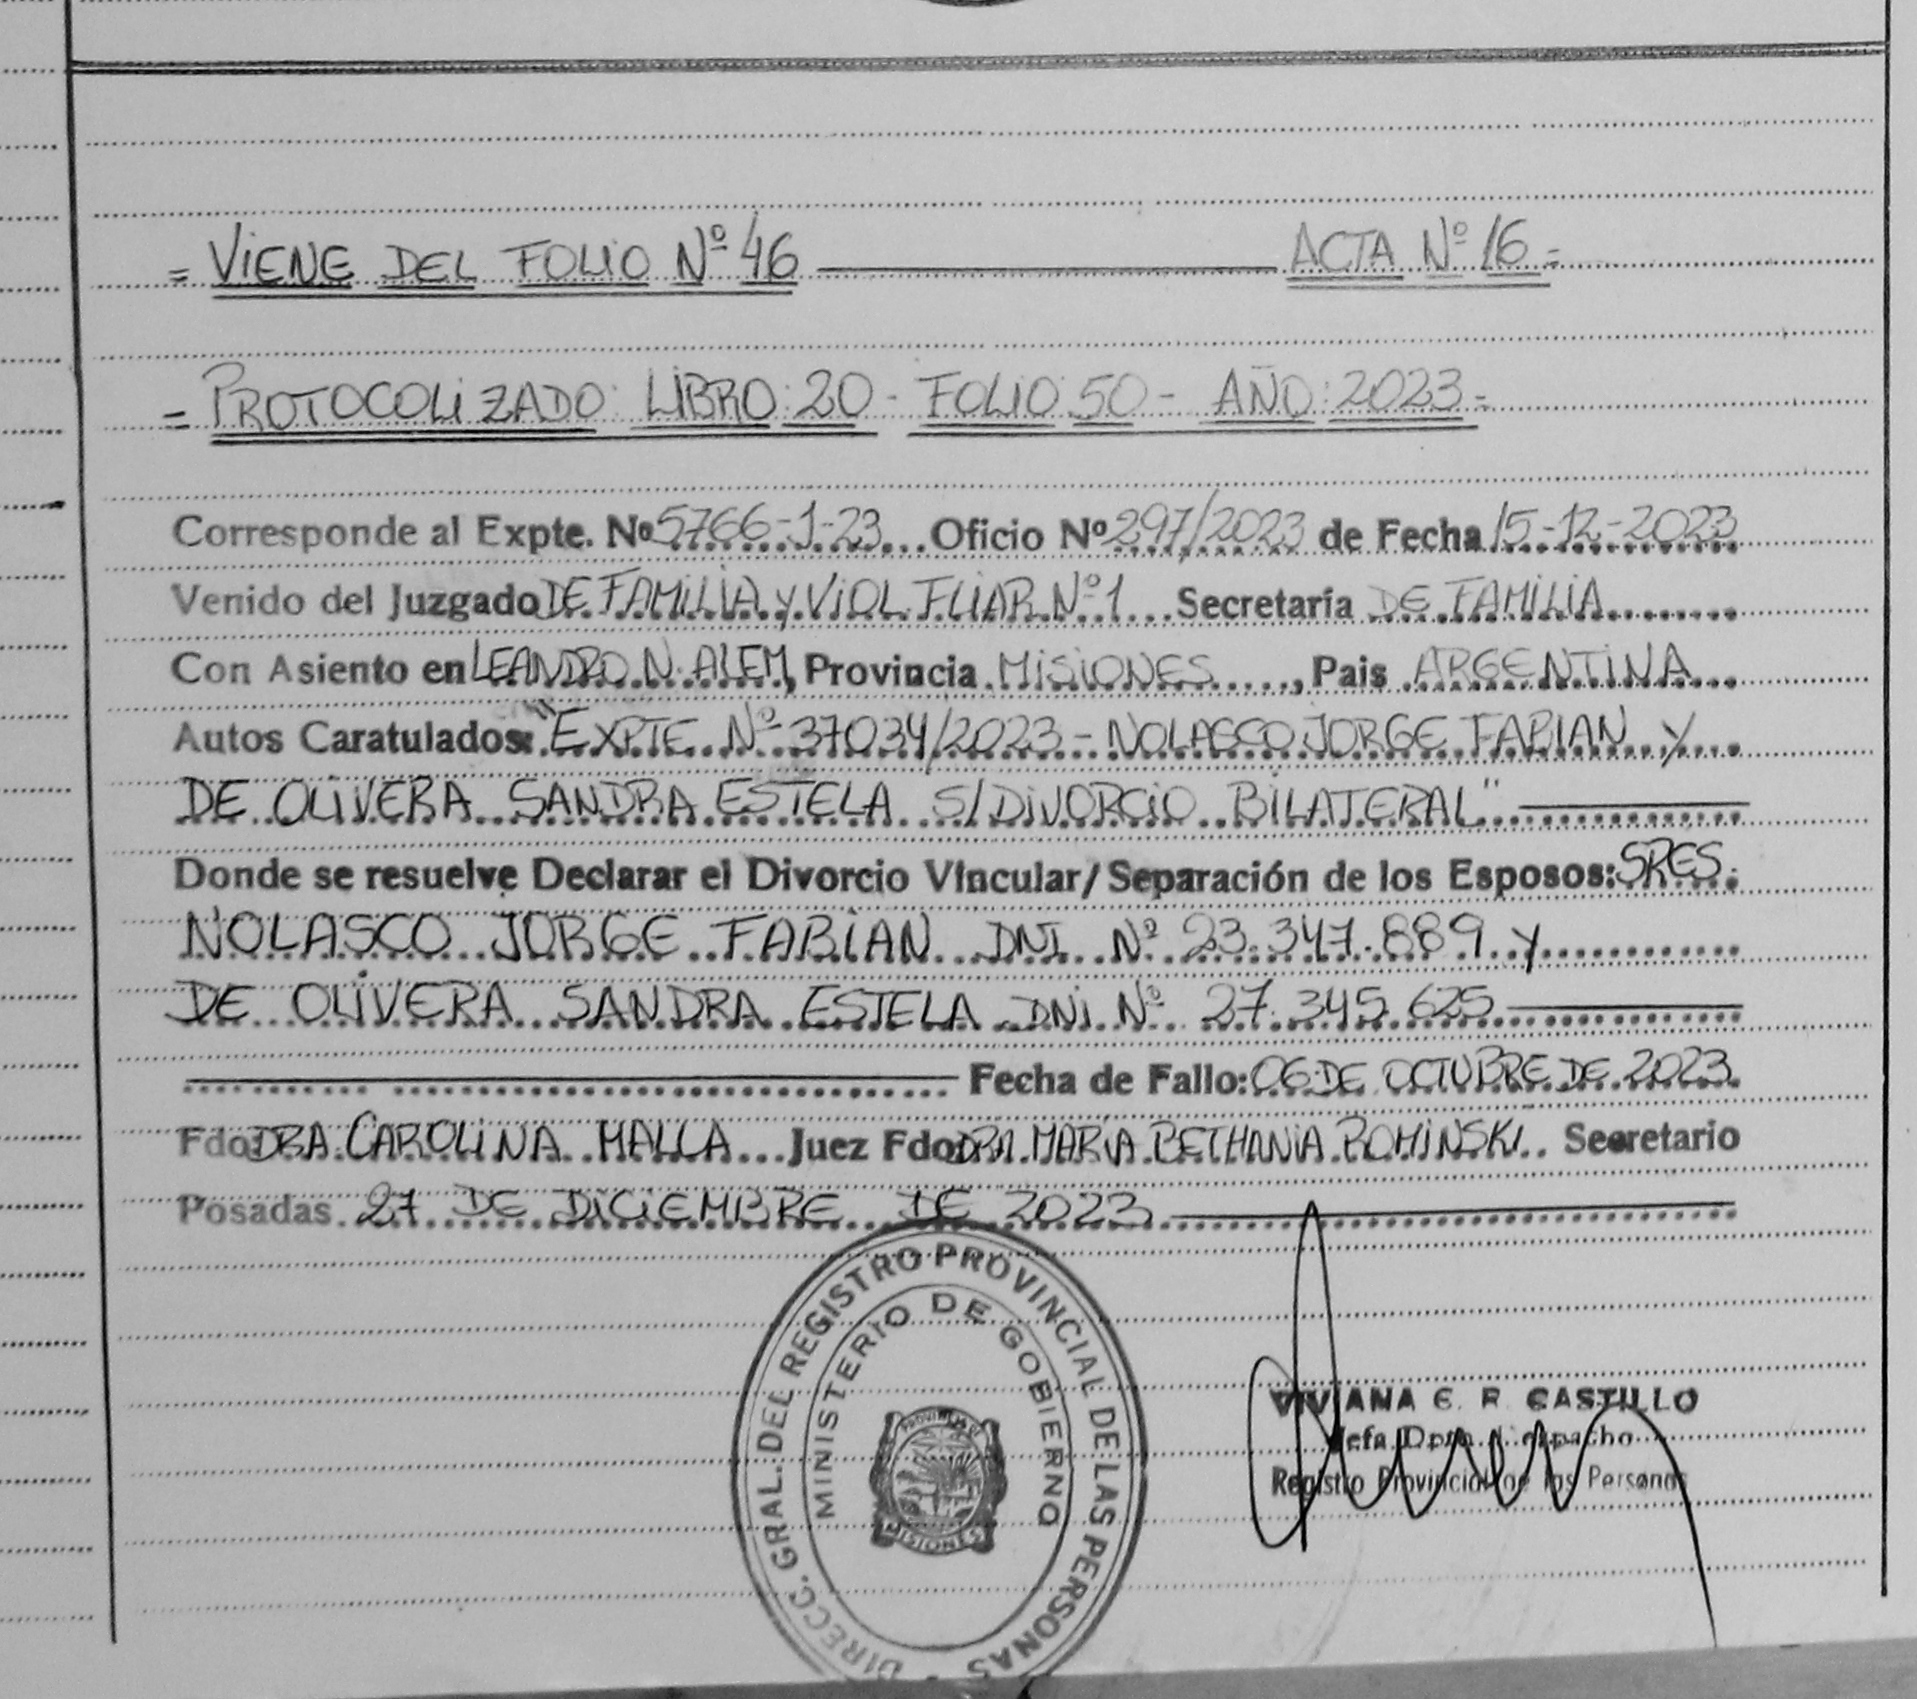 = VIENE DEL FOLIO Nº 46 ACTA Nº 16 =
= PROTOCOLIZADO: LIBRO: 20 - FOLIO: 50 - AÑO: 2023 -
Corresponde al Expte. Nº 5766-1-23 Oficio Nº 297/2023 de Fecha 15-12-2023
Venido del Juzgado DE FAMILIA Y VIOL. FLIAR. Nº 1 Secretaría DE FAMILIA
Con Asiento en LEANDRO N. ALEM, Provincia MISIONES, Pais ARGENTINA
Autos Caratulados: "EXPTE Nº 37034/2023 - NOLASCO JORGE FABIAN Y
DE OLIVERA SANDRA ESTELA S/DIVORCIO BILATERAL"
Donde se resuelve Declarar el Divorcio Vincular/Separación de los Esposos: SRES.
NOLASCO JORGE FABIAN DNI Nº 23.347.889 Y
DE OLIVERA SANDRA ESTELA DNI Nº 27.345.625
Fecha de Fallo: 06 DE OCTUBRE DE 2023.
Fdo DRA. CAROLINA MALLA Juez Fdo DRA. MARIA BETHANIA ROMINSKI. Secretario
Posadas 27 DE DICIEMBRE DE 2023
DIRECC. GRAL. DEL REGISTRO PROVINCIAL DE LAS PERSONAS -
MINISTERIO DE GOBIERNO
PROVINCIA DE
MISIONES
VIVIANA E. R. CASTILLO
Jefa Dpto. Despacho
Registro Provincial de las Personas